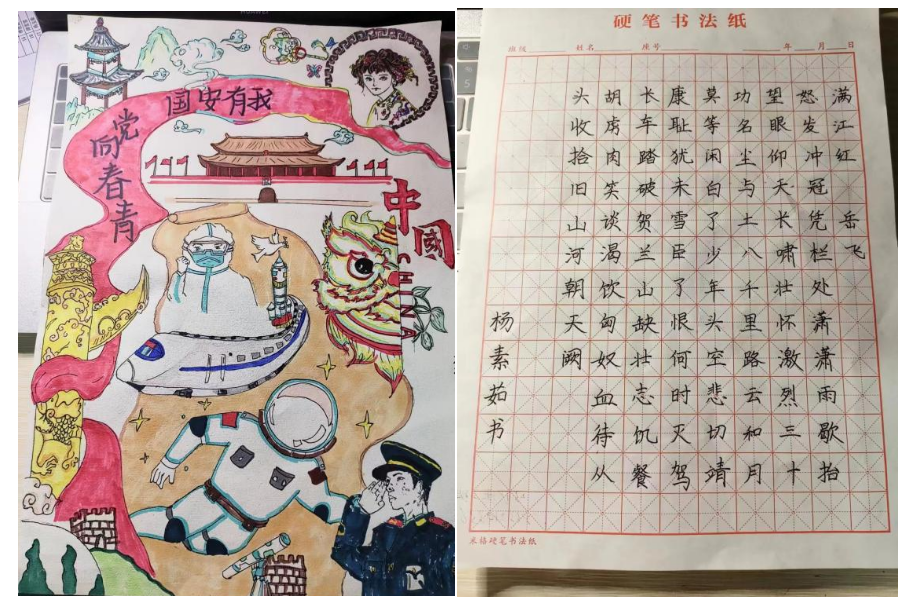 国安有我
青春向党
中國
CHINA
硬笔书法纸
班级 姓名 座号 年 月 日
满江红 岳飞
怒发冲冠凭栏处萧萧雨歇抬
望眼仰天长啸壮怀激烈三十
功名尘与土八千里路云和月
莫等闲白了少年头空悲切靖
康耻犹未雪臣了恨何时灭驾
长车踏破贺兰山缺壮志饥餐
胡虏肉笑谈渴饮匈奴血待从
头收拾旧山河朝天阙
杨素茹书
米格硬笔书法纸